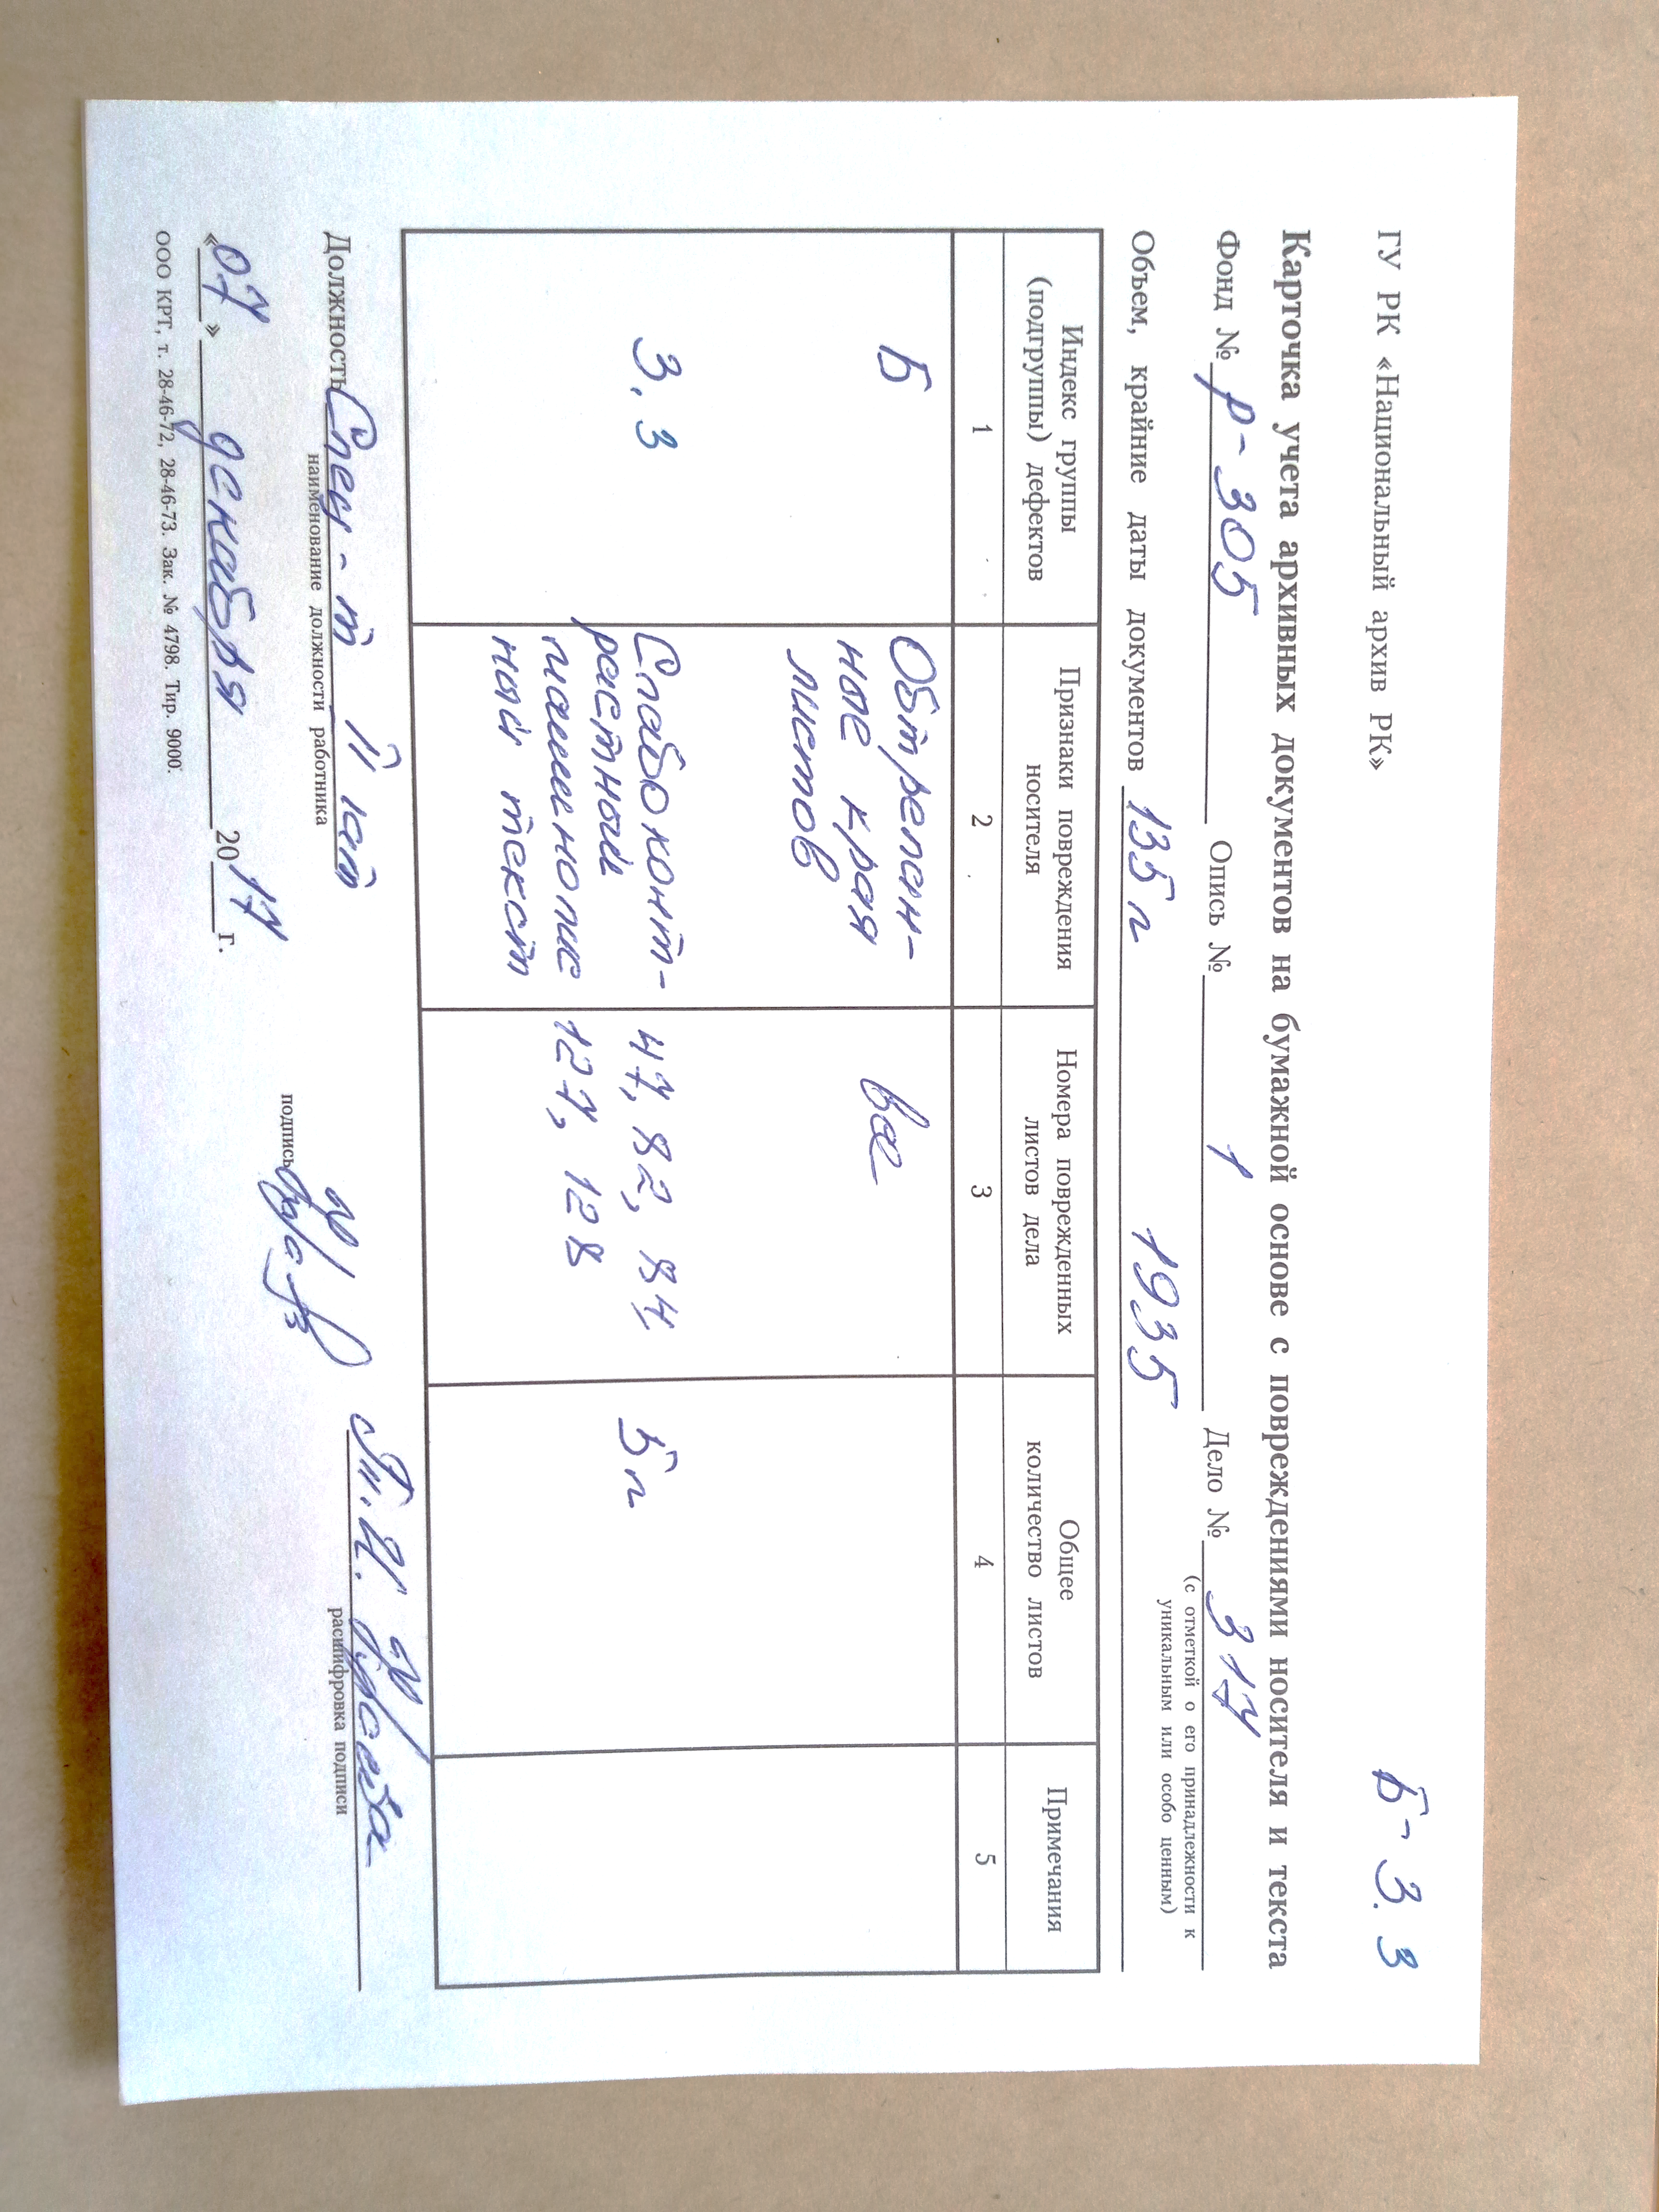 Б-3.3
ГУ РК «Национальный архив РК»
Карточка учета архивных документов на бумажной основе с повреждениями носителя и текста
Фонд № р-305 Опись № 1 Дело № 317
(с отметкой о его принадлежности к
уникальным или особо ценным)
Объем, крайние даты документов 135 л 1935
Индекс группы
(подгруппы) дефектов
Признаки повреждения
носителя
Номера поврежденных
листов дела
Общее
количество листов
Примечания
1 2 3 4 5
Б
Обтрепан-
ные края
листов
все
3.3
Слабоконт-
растный
машинопис
ный текст
47, 82, 84
127, 128
5 л
Должность Спец-т II кат
наименование должности работника
подпись
расшифровка подписи
«07» декабря 2017 г.
ООО КРТ, т. 28-46-72, 28-46-73. Зак. № 4798. Тир. 9000.